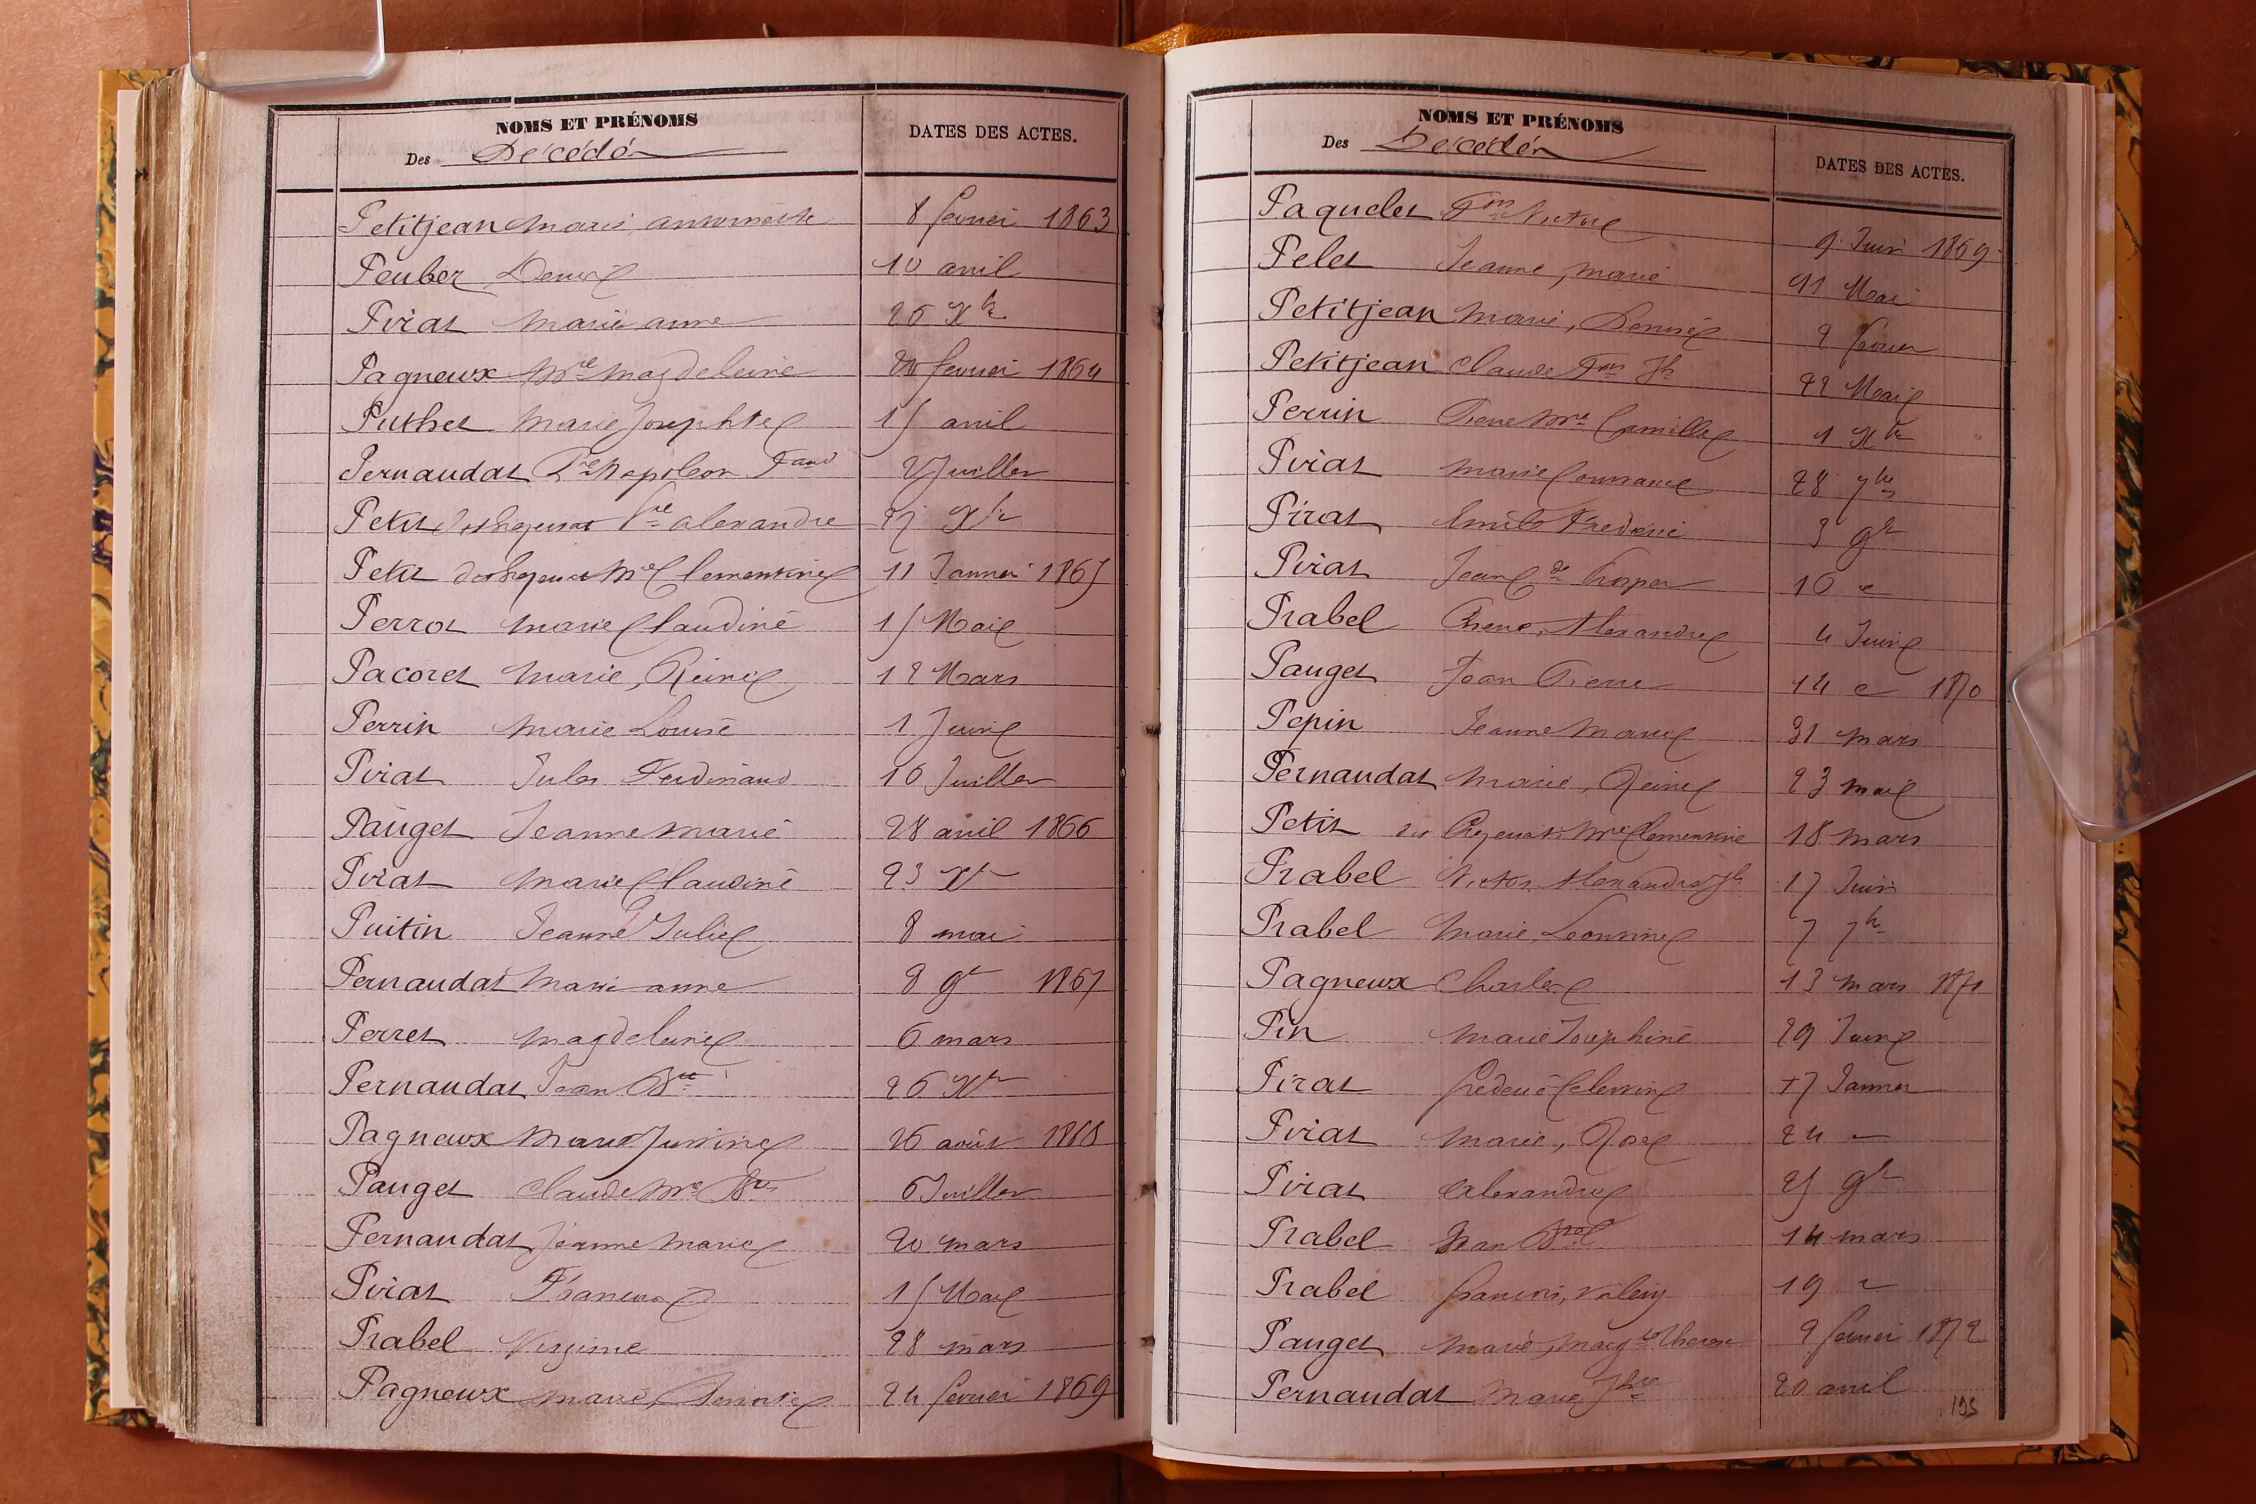 NOMS ET PRÉNOMS
Des Décédés
DATES DES ACTES.
Petitjean Marie antoinette 8 fevrier 1863
Peuber Denise 10 avril
Pirat Marie anne 26 Xbre
Pagneux Mie Magdeleine fevrier 1864
Puthet Marie Josephte 15 avril
Pernaudat Napoleon Fand 2 Juillet
Petit alexandre 27 Xbre
Petit Mie Clementine 11 Janvier 1865
Perrot Marie Claudine 15 Mai
Pacoret Marie, Reine 12 Mars
Perrin Marie Louise 1 Juin
Pirat Jules Ferdinand 16 Juillet
Pauget Jeanne Marie 28 avril 1866
Pirat Marie Claudine 23 Xbre
Puitin Jeanne Julie 8 mai
Pernaudat Marie anne 8 9bre 1867
Perret Magdeleine 6 mars
Pernaudat Jean Bte 26 Xbre
Pagneux Marie Justine 26 août 1868
Pauget Claude Mie 6 Juillet
Pernaudat Jeanne Marie 20 mars
Pirat 15 Mai
Prabel Virginie 28 mars
Pagneux Marie, 24 fevrier 1869
NOMS ET PRÉNOMS
Des Décédés
DATES DES ACTES.
Paquelet Fois Victor 9 Juin 1869
Pelet Jeanne, Marie Mai
Petitjean Marie, Denise 2 février
Petitjean Claude Fois Jh 22 Mai
Perrin Pierre Mie Camille 1 Xbre
Pirat Marie Constance 28 7bre
Pirat Emile Frederic 3 9bre
Pirat Jean Cde Prosper 10 "
Prabel Pierre, Alexandre 4 Juin
Pauget Jean Pierre 14 " 1870
Pepin Jeanne Marie 31 mars
Pernaudat Marie, Reine 23 mai
Petit Mie Clementine 18 mars
Prabel Victor, Alexandre Jh 17 Juin
Prabel Marie, Leontine 7 7bre
Pagneux Charles 13 mars 1871
Pin Marie Josephine 29 Juin
Pirat fréderic Celestin 17 Janvier
Pirat Marie, Rose 24 "
Pirat alexandre 25 9bre
Prabel Jean 14 mars
Prabel francois, Valery 19 "
Pauget Marie, Margte Therese 2 fevrier 1872
Pernaudat Marie Jhine 20 avril
195